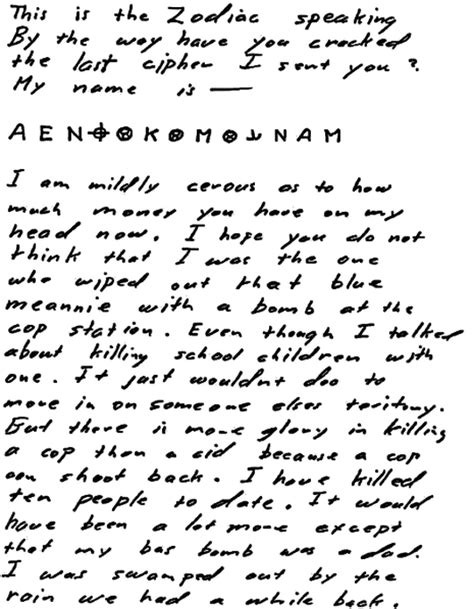 This is the Zodiac speaking
By the way have you cracked
the last cipher I sent you?
My name is —
A E N ⌖ ⊗ K ⊗ M ⊗ ⅃ N A M
I am mildly cerous as to how
much money you have on my
head now. I hope you do not
think that I was the one
who wiped out that blue
meannie with a bomb at the
cop station. Even though I talked
about killing school children with
one. It just wouldnt doo to
move in on someone elses teritory.
But there is more glory in killing
a cop than a cid because a cop
can shoot back. I have killed
ten people to date. It would
have been a lot more except
that my bas bomb was a dad.
I was swamped out by the
rain we had a while back.